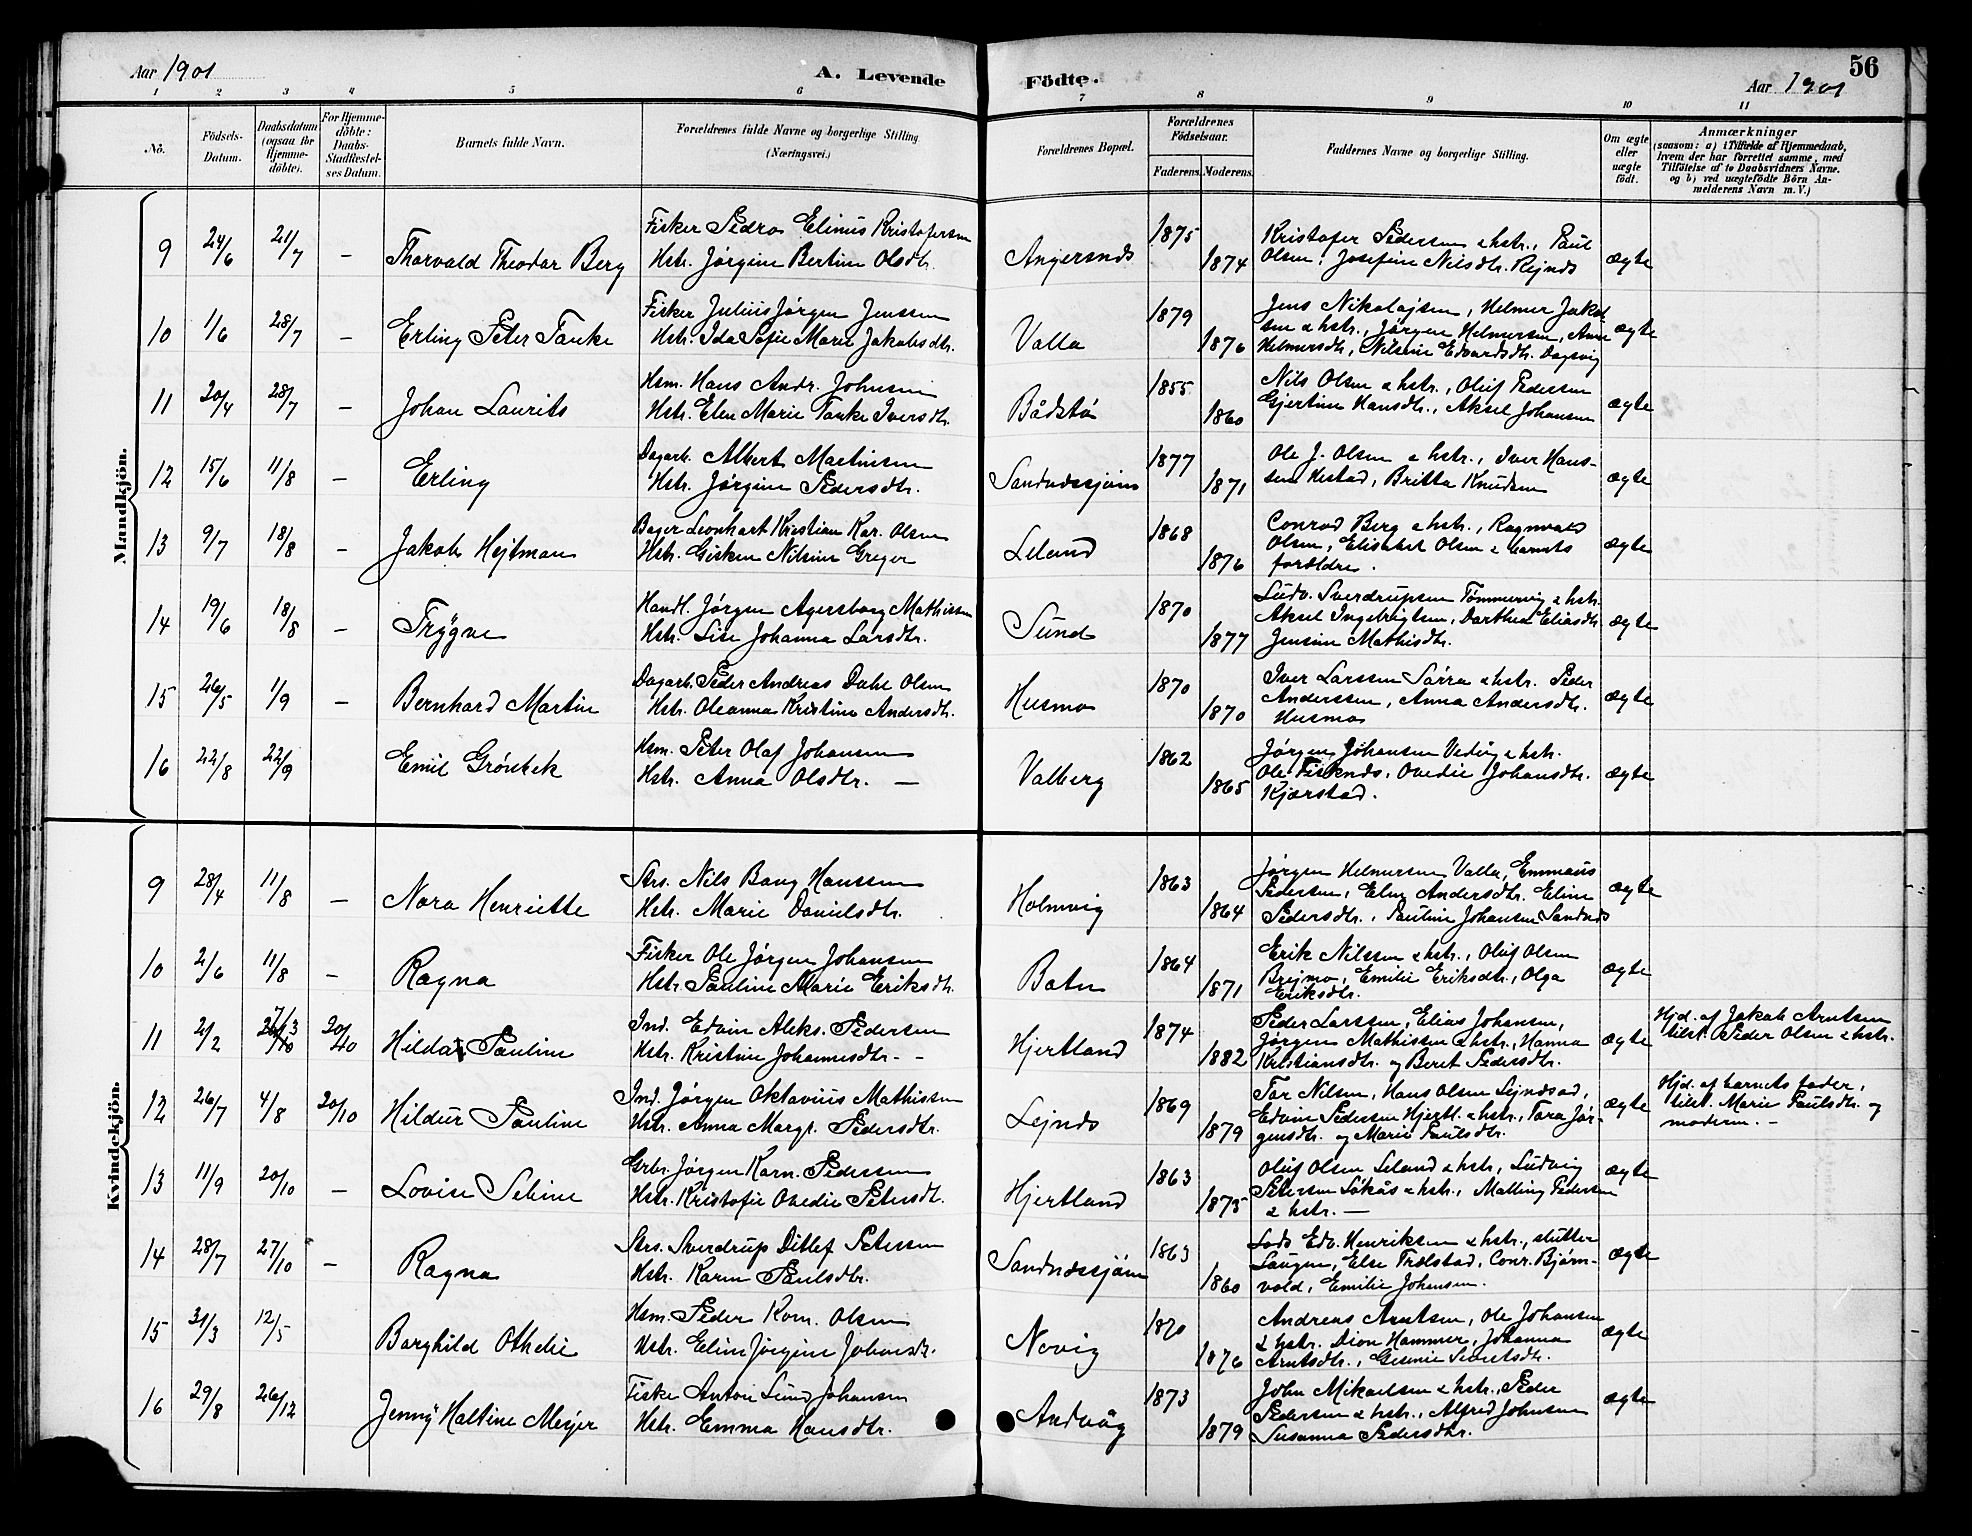 Aar 1901
A. Levende Födte.
Aar 1901
56
1 2 3 4 5 6 7 8 9 10 11
No.
Födsels-Datum.
Daabsdatum (ogsaa for Hjemmedöbte).
For Hjemmedöbte: Daabs-Stadfæstelses Datum.
Barnets fulde Navn.
Forældrenes fulde Navne og borgerlige Stilling (Næringsvei.)
Forældrenes Bopæl.
Forældrenes Födselsaar.
Faderens. Moderens.
Faddernes Navne og borgerlige Stilling.
Om ægte eller uægte födt.
Anmærkninger
(saasom: a) i Tilfælde af Hjemmedaab, hvem der har forrettet samme, med Tilföielse af to Daabsvidners Navne. og b) ved uægtefödte Börn Anmelderens Navn m. V.)
Mandkjön.
9 24/6 21/7 – Thorvald Theodor Berg
Fisker Pedro Elinius Kristofersen
Hstr. Jørgine Bertine Olsdtr.
Angersnes 1875 1874
Kristofer Pedersen & hstr., Paul
Olsen, Josefine Nilsdtr. Rejnes
ægte
10 1/6 28/7 – Erling Peter Tanke
Fisker Julius Jørgen Jensen
Hstr. Ida Sofie Marie Jakobsdtr.
Valla 1879 1876
Jens Nikolajsen, Helmer Jakob
sen & hstr., Jørgen Helmersen, Anne
Helmersdtr., Nilsine Edvardsdtr. Dagsvig
ægte
11 20/4 28/7 – Johan Laurits
Hsm. Hans Andr. Johnsen
Hstr. Elen Marie Tanke Iversdtr.
Bådstø 1855 1860
Nils Olsen & hstr., Oluf Pedersen
Gjertine Hansdtr., Aksel Johansen
ægte
12 15/6 11/8 – Erling
Dagarb. Albert Martinsen
Hstr. Jørgine Pedersdtr.
Sandnessjøen 1877 1871
Ole J. Olsen & hstr., Iver Hans-
sen Hestad, Britta Knudsen
ægte
13 9/7 18/8 – Jakob Hejtman
Bager Leonhart Kristian Kar. Olsen
Hstr. Gisken Nilsine Greger
Leland 1868 1876
Conrad Berg & hstr., Ragnvald
Olsen, Elisabet Olsen & barnets
forældre.
ægte
14 19/6 18/8 – Trygve
Handl. Jørgen Agersborg Mathissen
Hstr. Lise Johanna Larsdtr.
Sund 1870 1877
Ludv. Sverdrupsen Tømmervig & hstr.
Aksel Ingebrigtsen, Dorthea Eliasdtr
Jensine Mathisdtr.
ægte
15 26/5 1/9 – Bernhard Martin
Dagarb. Peder Andreas Dahl Olsen
Hstr. Oleanna Kristine Andersdtr.
Husmo 1870 1870
Iver Larssen Sørra & hstr. Peder
Anderssen, Anna Andersdtr.
Husmo
ægte
16 22/8 22/9 Emil Grønbek
Hsm. Peter Olaf Johansen
Hstr. Anna Olsdtr. –
Valberg 1862 1865
Jørgen Johansen Veding & hstr.
Ole Fisknes, Ovedie Johansdtr.
Kjærstad.
ægte
Kvindekjön.
9 28/4 11/8 – Nora Henriette
Strs. Nils Bang Hanssen
Hstr. Marie Danielsdtr.
Holmvig 1863 1864
Jørgen Helmersen Valla, Emmaus
Pedersen, Elen Andersdtr. Eline
Pedersdtr., Pauline Johansen Sandnes
ægte
10 2/6 11/8 – Ragna
Fisker Ole Jørgen Johansen
Hstr. Pauline Marie Eriksdtr.
Botn 1864 1871
Erik Nilssen & hstr., Oluf Olsen
Brejmo, Emilie Eriksdtr., Olga
Eriksdtr.
ægte
11 2/2 7/3 20/10 Hilda Pauline
Ind. Edvin Aleks. Pedersen
Hstr. Kristine Johannesdtr. –
Hjertland 1874 1882
Peder Larssen, Elias Johansen,
Jørgen Mathissen & hstr., Hanna
Kristiansdtr. og Beret Pedersdtr.
ægte
Hjd. af Jakob Arntsen
tilst. Peder Olsen & hstr.
12 26/7 4/8 20/10 Hildur Pauline
Ind. Jørgen Oktavius Mathissen
Hstr. Anna Margr. Pedersdtr.
Lejnes 1869 1879
Tor Nilsen, Hans Olsen Lejnesod,
Edvin Pedersen Hjertl. & hstr., Tora Jør-
gensdtr. og Marie Paulsdtr.
ægte
Hjd. af barnets fader,
tilst. Marie Paulsdtr. og
moderen. –
13 11/9 20/10 – Lovise Seline
Grbr. Jørgen Korn. Pedersen
Hstr. Kristofie Ovedie Petersdtr.
Hjertland 1863 1875
Oluf Olsen Leland & hstr., Ludvig
Petersen Søkås & hstr., Malling Pedersen
& hstr. –
ægte
14 28/7 27/10 – Ragna
Strs. Sverdrup Ditlef Petersen
Hstr. Karen Paulsdtr.
Sandnessjøen 1863 1860
Lods Edv. Henriksen & hstr.,
Laugen, Else Trælstad, Conr. Bjørn-
vold, Emilie Johansen.
ægte
15 31/3 12/5 Borghild Othelie
Hsm. Peder Korn. Olsen
Hstr. Eline Jørgine Johansdtr.
Novig 1870 1876
Andreas Arntsen, Ole Johansen
& hstr. Dion Hammer, Johanna
Arntsdtr., Gesine Sivertsdtr.
ægte
16 29/8 26/12 Jenny Haltine Mejer
Fisker Anton Lund Johansen
Hstr. Emma Hansdtr.
Andvåg 1873 1879
John Mikaelsen & hstr., Peder
Pedersen & hstr., Alfred Johnsen
Susanna Pedersdtr.
ægte